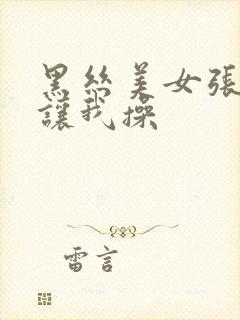 黑丝美女張
讓我操
雷言